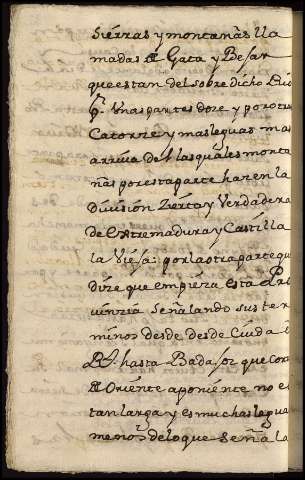 sierras y montañas lla
madas de Gata y Besar
que estan del sobre dicho Rio
pr. unas partes doze y por otra
Catorze y mas leguas mas
arriva de las quales monta
ñas por esta parte hazen la
division zierta y verdadera
de Extremadura y Castilla
la Vieja: por la otra parte qu
dize que empieza esta Pro
vinzia señalando sus ter
minos desde desde Ciudad
Rl. hasta Badajoz que corre
de Oriente a poniente no es
tan larga y es muchas legua
menos de lo que señala